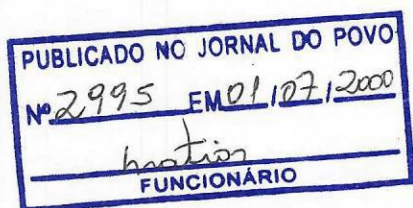 PUBLICADO NO JORNAL DO POVO
Nº 2995 EM 01/07/2000
FUNCIONÁRIO